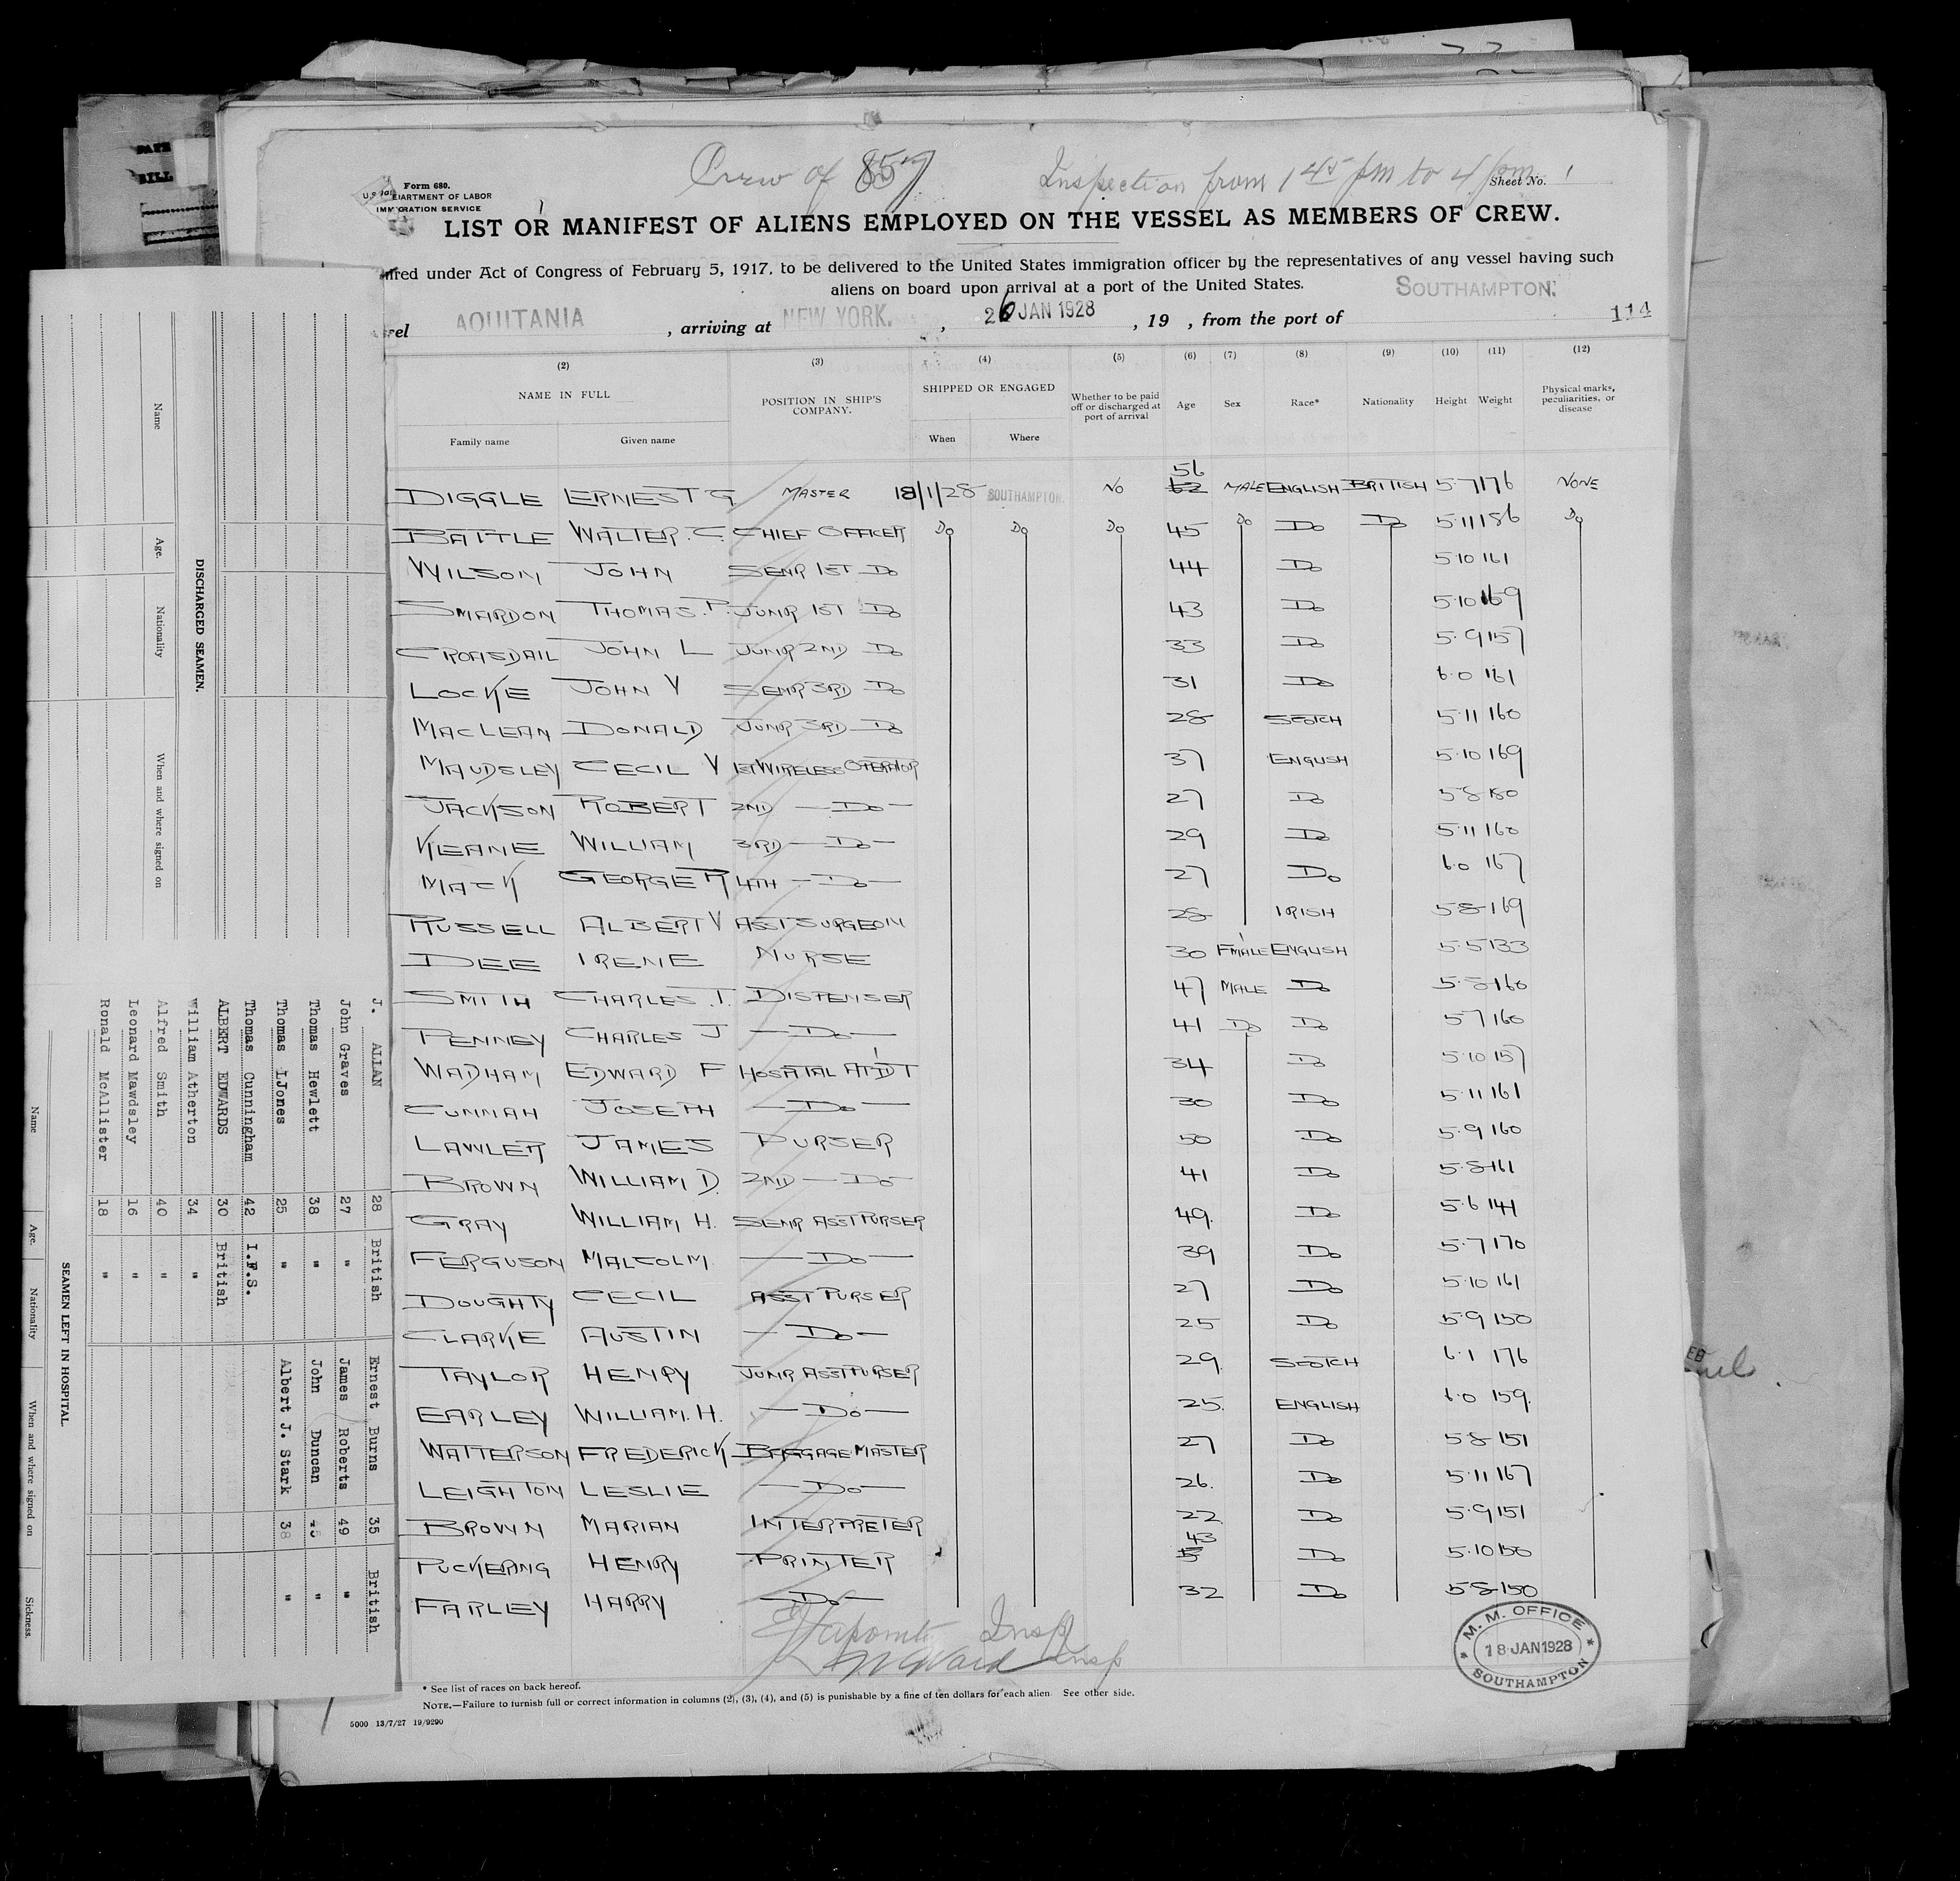 Crew of 857
Inspection from 1 45 pm to 4 pm
Form 680.
DEPARTMENT OF LABOR
IMMIGRATION SERVICE
Sheet No. 1
LIST OR MANIFEST OF ALIENS EMPLOYED ON THE VESSEL AS MEMBERS OF CREW.
under Act of Congress of February 5, 1917, to be delivered to the United States immigration officer by the representatives of any vessel having such
aliens on board upon arrival at a port of the United States.
AQUITANIA , arriving at NEW YORK. , 26 JAN 1928 , 19 , from the port of SOUTHAMPTON. 114
(2) (3) (4) (5) (6) (7) (8) (9) (10) (11) (12)
NAME IN FULL POSITION IN SHIP'S COMPANY. SHIPPED OR ENGAGED Whether to be paid off or discharged at port of arrival Age Sex Race* Nationality Height Weight Physical marks, peculiarities, or disease
Family name Given name When Where
DIGGLE ERNEST G MASTER 18/1/28 SOUTHAMPTON. NO 56 62 MALE ENGLISH BRITISH 5·7 176 NONE
BATTLE WALTER. C. CHIEF OFFICER DO DO DO 45 DO DO DO 5·11 186 DO
WILSON JOHN SENR 1ST DO 44 DO 5·10 161
SMARDON THOMAS. P. JUNR 1ST DO 43 DO 5·10 169
CROASDAIL JOHN L JUNR 2ND DO 33 DO 5·9 157
LOCKE JOHN V SENR 3RD DO 31 DO 6·0 161
MACLEAN DONALD JUNR 3RD DO 28 SCOTCH 5·11 160
MAUDSLEY CECIL V 1ST WIRELESS OPERATOR 37 ENGLISH 5·10 169
JACKSON ROBERT 2ND DO 27 DO 5·8 180
KEANE WILLIAM 3RD DO 29 DO 5·11 160
MACK GEORGE R 4TH DO 27 DO 6·0 167
RUSSELL ALBERT V ASST SURGEON 28 IRISH 5·8 169
DEE IRENE NURSE 30 FMALE ENGLISH 5·5 133
SMITH CHARLES. T. DISPENSER 47 MALE DO 5·8 160
PENNEY CHARLES J DO 41 DO DO 5·7 160
WADHAM EDWARD F HOSPITAL ATDT 34 DO 5·10 157
CUNNAH JOSEPH DO 30 DO 5·11 161
LAWLER JAMES PURSER 50 DO 5·9 160
BROWN WILLIAM D. 2ND DO 41 DO 5·8 161
GRAY WILLIAM H. SENR ASST PURSER 49. DO 5·6 141
FERGUSON MALCOLM. DO 39 DO 5·7 170
DOUGHTY CECIL ASST PURSER 27 DO 5·10 161
CLARKE AUSTIN DO 25 DO 5·9 150
TAYLOR HENRY JUNR ASST PURSER 29. SCOTCH 6·1 176
EARLEY WILLIAM. H. DO 25. ENGLISH 6·0 159.
WATTERSON FREDERICK BAGGAGE MASTER 27 DO 5·8 151
LEIGHTON LESLIE DO 26. DO 5·11 167
BROWN MARIAN INTERPRETER 22 DO 5·9 151
PUCKERING HENRY PRINTER 43 DO 5·10 150
FARLEY HARRY DO 32 DO 5·8 150
Insp
Ward Insp
M. M. OFFICE
18 JAN 1928
SOUTHAMPTON
* See list of races on back hereof.
NOTE.—Failure to furnish full or correct information in columns (2), (3), (4), and (5) is punishable by a fine of ten dollars for each alien. See other side.
5000 13/7/27 19/9290
DISCHARGED SEAMEN.
Name Age. Nationality When and where signed on
J. ALLAN 28 British
John Graves 27 "
Thomas Hewlett 38 "
Thomas LJones 25 "
Thomas Cunningham 42 I.F.S.
ALBERT EDWARDS 30 British
William Atherton 34 "
Alfred Smith 40 "
Leonard Mawdsley 16 "
Ronald McAllister 18 "
Ernest Burns 35 British
James Roberts 49 "
John Duncan 45 "
Albert J. Stark 38 "
SEAMEN LEFT IN HOSPITAL
Name Age. Nationality When and where signed on Sickness.